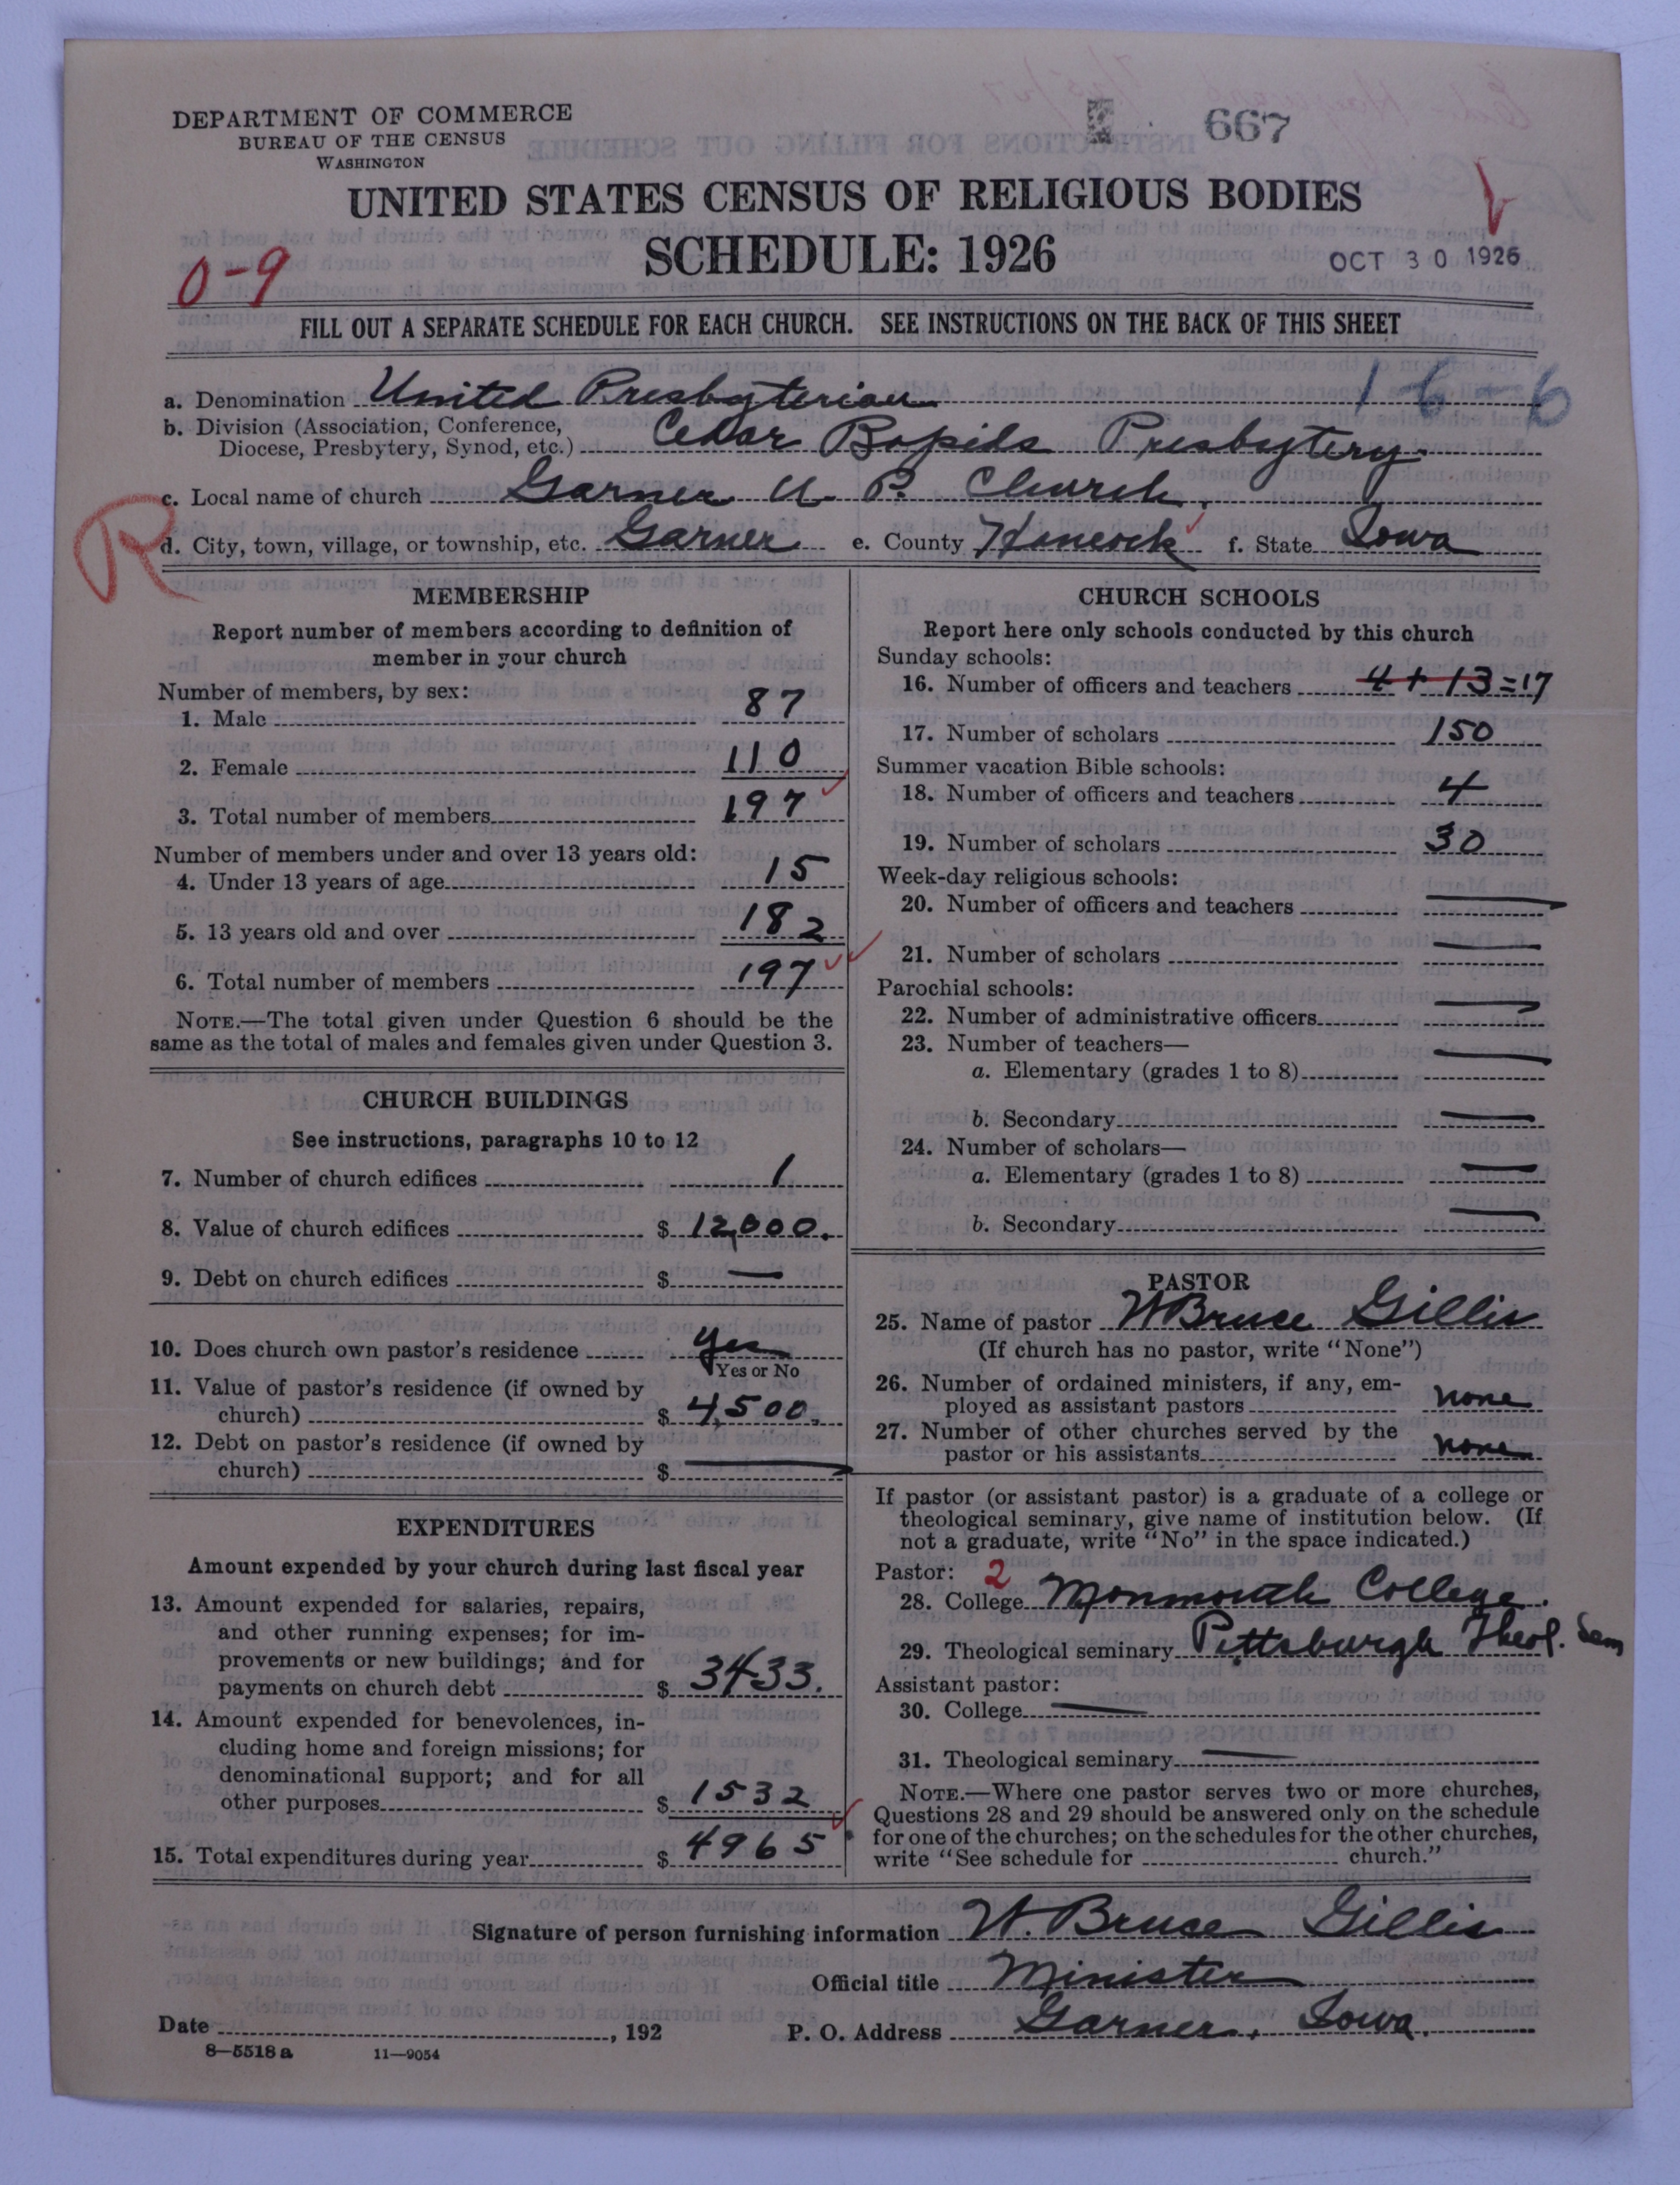 DEPARTMENT OF COMMERCE
BUREAU OF THE CENSUS
WASHINGTON
667
UNITED STATES CENSUS OF RELIGIOUS BODIES
SCHEDULE: 1926
OCT 30 1926
0-9
FILL OUT A SEPARATE SCHEDULE FOR EACH CHURCH. SEE INSTRUCTIONS ON THE BACK OF THIS SHEET
a. Denomination United Presbyterian 16-6
b. Division (Association, Conference,
Diocese, Presbytery, Synod, etc.) Cedar Rapids Presbytery.
R
c. Local name of church Garner U. P. Church.
d. City, town, village, or township, etc. Garner e. County Hancock f. State Iowa
MEMBERSHIP
Report number of members according to definition of
member in your church
Number of members, by sex:
1. Male 87
2. Female 110
3. Total number of members 197
Number of members under and over 13 years old:
4. Under 13 years of age 15
5. 13 years old and over 182
6. Total number of members 197
NOTE.—The total given under Question 6 should be the
same as the total of males and females given under Question 3.
CHURCH BUILDINGS
See instructions, paragraphs 10 to 12
7. Number of church edifices 1
8. Value of church edifices $ 12,000.
9. Debt on church edifices $ —
10. Does church own pastor's residence yes
Yes or No
11. Value of pastor's residence (if owned by
church) $ 4,500.
12. Debt on pastor's residence (if owned by
church) $ —
EXPENDITURES
Amount expended by your church during last fiscal year
13. Amount expended for salaries, repairs,
and other running expenses; for im-
provements or new buildings; and for
payments on church debt $ 3433.
14. Amount expended for benevolences, in-
cluding home and foreign missions; for
denominational support; and for all
other purposes $ 1532
15. Total expenditures during year $ 4965
CHURCH SCHOOLS
Report here only schools conducted by this church
Sunday schools:
16. Number of officers and teachers 4 + 13 = 17
17. Number of scholars 150
Summer vacation Bible schools:
18. Number of officers and teachers 4
19. Number of scholars 30
Week-day religious schools:
20. Number of officers and teachers —
21. Number of scholars —
Parochial schools:
22. Number of administrative officers —
23. Number of teachers—
a. Elementary (grades 1 to 8) —
b. Secondary —
24. Number of scholars—
a. Elementary (grades 1 to 8) —
b. Secondary —
PASTOR
25. Name of pastor W Bruce Gillis
(If church has no pastor, write "None")
26. Number of ordained ministers, if any, em-
ployed as assistant pastors none
27. Number of other churches served by the
pastor or his assistants none
If pastor (or assistant pastor) is a graduate of a college or
theological seminary, give name of institution below. (If
not a graduate, write "No" in the space indicated.)
Pastor: 2
28. College Monmouth College.
29. Theological seminary Pittsburgh Theol. Sem
Assistant pastor:
30. College —
31. Theological seminary —
NOTE.—Where one pastor serves two or more churches,
Questions 28 and 29 should be answered only on the schedule
for one of the churches; on the schedules for the other churches,
write "See schedule for church."
Signature of person furnishing information W. Bruce Gillis
Official title Minister
Date , 192 P. O. Address Garner, Iowa.
8—5518 a 11—9054